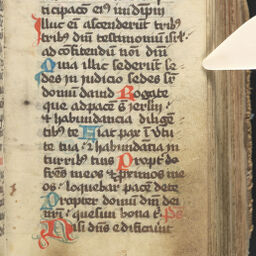 ticipacō eiꝰ in idipm
Illuc eī ascenderūt tribꝰ
tribꝰ dm̄ testimoniū isrl
ad cōfitendū noī dm̄
Quia illic sederūt se
des in judicio sedes sr̄
domū dauid Rogate
que ad pacē s̄ jerlm̄
& habundancia diligē
tibꝰ te Fiat pax ī v̄tu
te tua & habundātia in
turribꝰ tuis Propt̄ do
fr̄es meos & p̄ximos me
os loquebar pacē de te
Propter domū dm̄ dei
nr̄i quesiui bona t̄ Ps
Nisi dn̄s edificauit